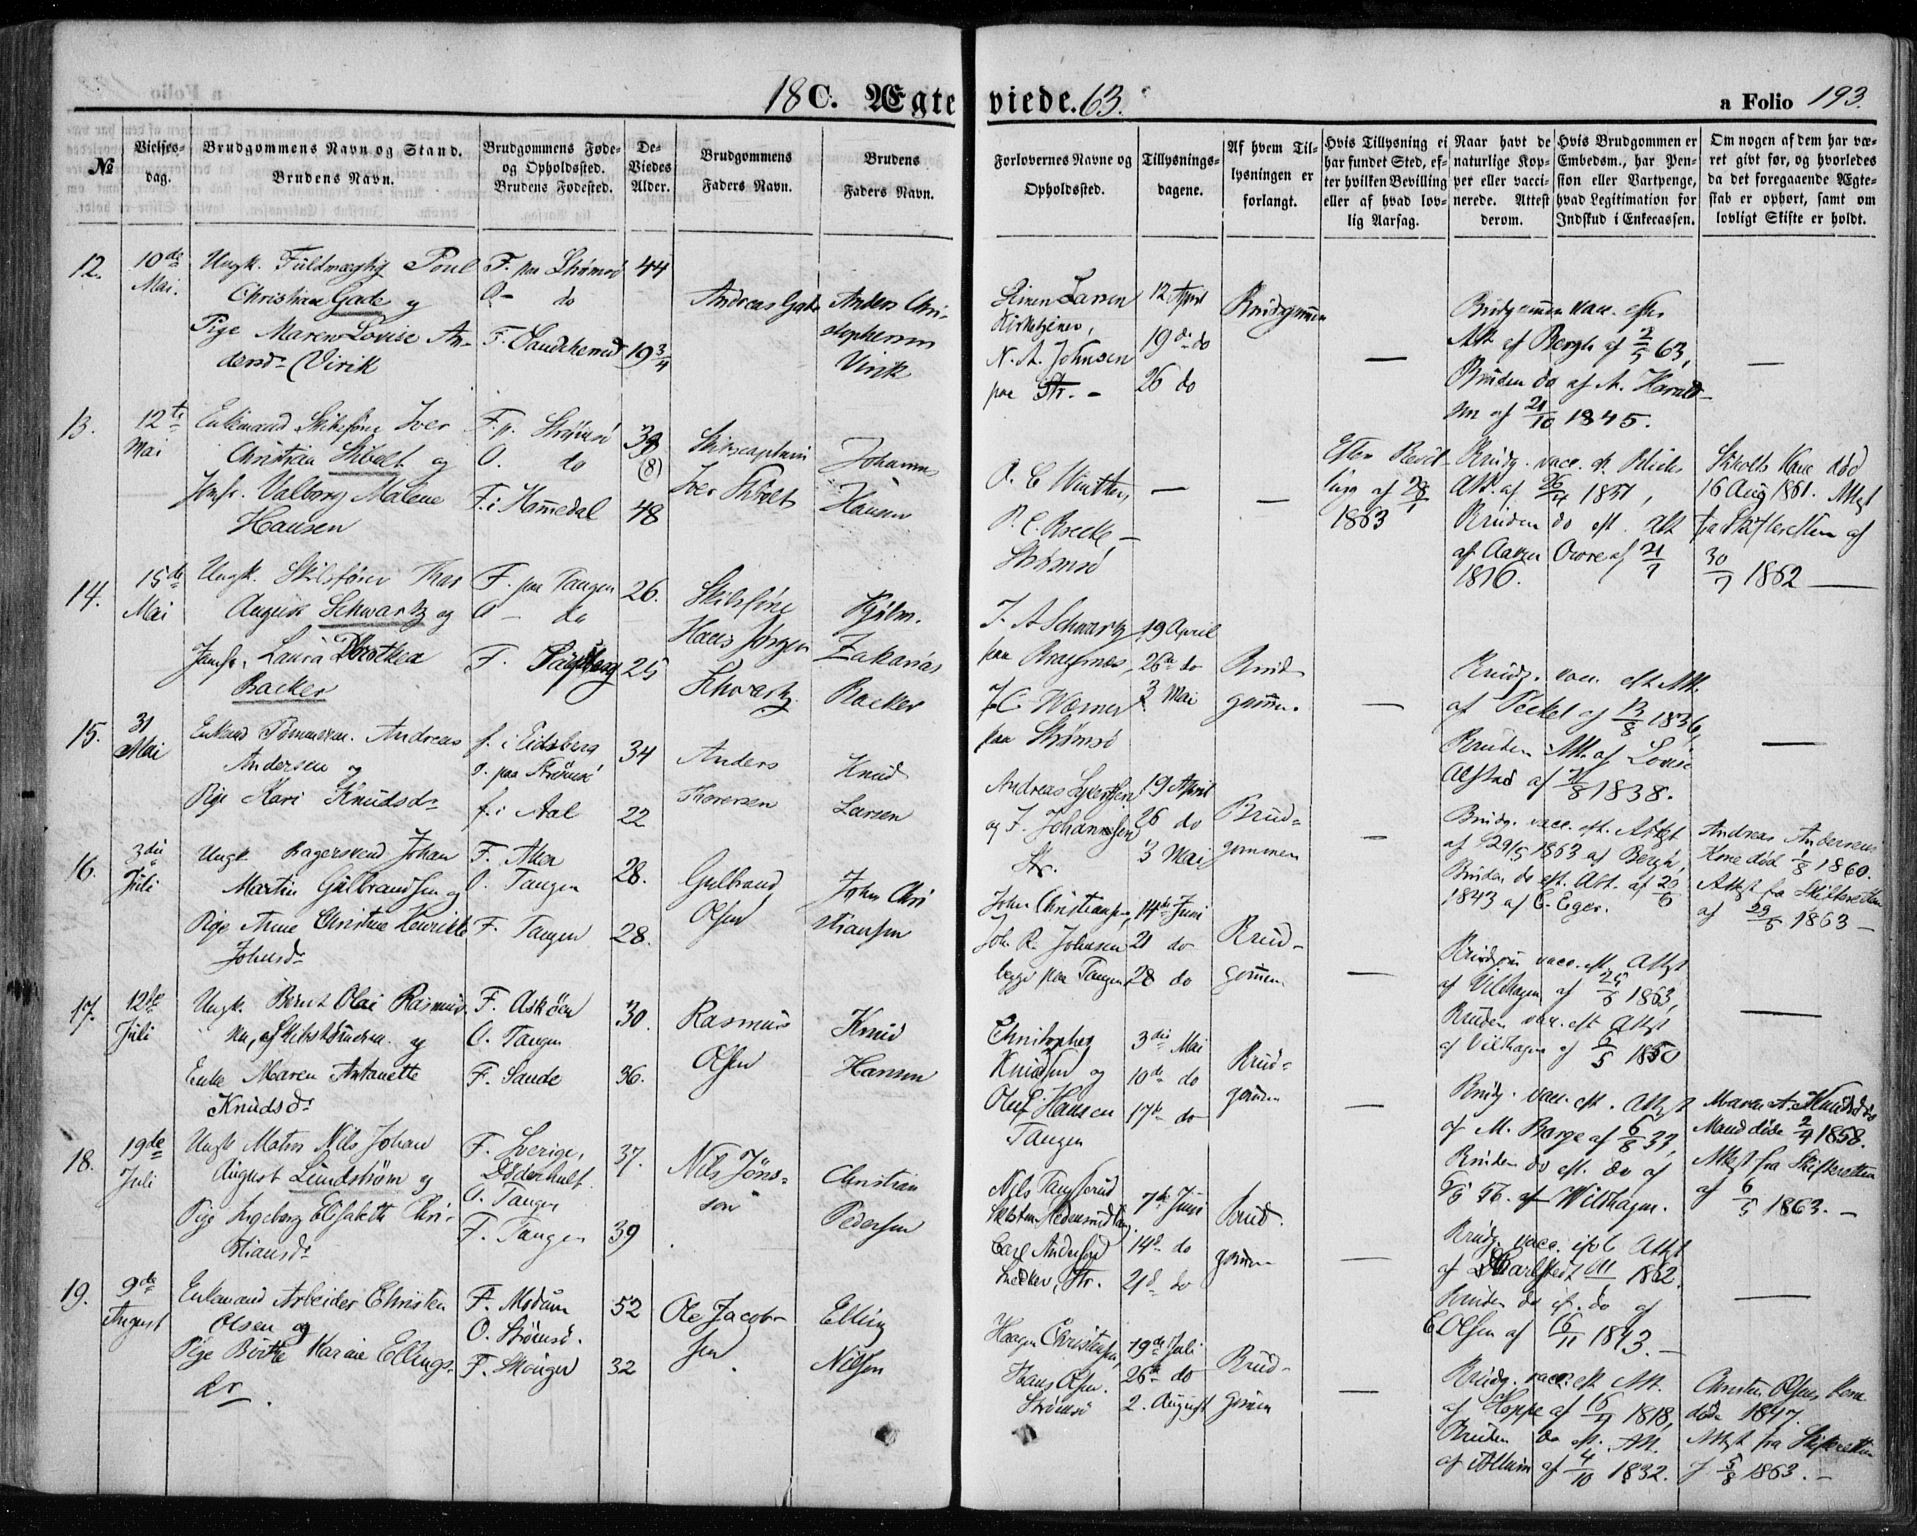 18 C. Ægteviede. 63.
a Folio 193.
№
Vielses-
dag.
Brudgommens Navn og Stand.
Brudens Navn.
Brudgommens Føde-
og Opholdssted.
Brudens Fødested.
De
Viedes
Alder.
Brudgommens
Faders Navn.
Brudens
Faders Navn.
Forlovernes Navne og
Opholdssted.
Tillysnings-
dagene.
Af hvem Til-
lysningen er
forlangt.
Hvis Tillysning ei
har fundet Sted, ef-
ter hvilken Bevilling
eller af hvad lov-
lig Aarsag.
Naar havt de
naturlige Kop-
per eller vacci-
nerede. Attest
derom.
Hvis Brudgommen er
Embedsm., har Pen-
sion eller Vartpenge,
hvad Legitimation for
Indskud i Enkecassen.
Om nogen af dem har væ-
ret givt før, og hvorledes
da det foregaaende Ægte-
skab er ophørt, samt om
lovligt Skifte er holdt.
12.
10de
Mai.
Ungk. Fuldmægtig Poul
Christian Gade og
Pige Maren Lovise An-
dersd. (Virik
F. paa Strømsø
O- do
F. Sandeherred
44
19 3/4
Andreas Gade
Anders Chri-
stophersen
Virik
Simen Larsen
Kirketjener,
N. A. Johnsen
paa Str. -
12 April
19de do
26 do
Brudgommen
—
Brudgommen vacc. efter
Att. af Bergh af 2/5 63,
Bruden do af A. Harald-
sen af 21/10 1845.
—
13.
12te
Mai
Enkemand Skibsfører Iver
Christian Skibolt og
Jomfr. Valborg Malene
Hansen
F. p. Strømsø
O. do
F. i Hommedal
39
(8)
48
Skibscaptain
Iver Skibolt
Johannes
Hansen
O. C. Winther,
P. C. Brecke —
Strømsø
—
—
Efter Bevil-
ling af 28/1
1863
Brudg. vacc.
Att. af 26/4 1831,
Bruden do eft. Att
af Aasen
1816.
Skibolts Kone død
16 Aug 1861. Attest
fra Skifteretten af
30/7 1862 —
14.
15de
Mai
Ungk. Skibsfører Thor
August Schwartz og
Jomfr. Laura Dorothea
Backer
F. paa Tangen
O — do
F.
26.
25
Skibsfører
Hans Jørgen
Schwartz
Kjøbm.
Zakarias
Backer
J. A Schwartz
paa Bragernes,
J. C. Wærner
paa Strømsø
19 April
26de do
3 Mai
Brud-
gommen.
—
Brudg. vacc. eft Att.
af Peckel af 13/8 1836,
Bruden: Att. af Lovise
Alstad af 21/8 1838.
—
15.
31
Mai
Enkemand Tømmermand Andreas
Andersen og
Pige Kari Knudsdr
f. i Eidsberg
o. paa Strømsø
f. i Aal
34
22
Anders
Thoresen
Knud
Larsen
Andreas
og J. Johannesen
Str.
19 April
26 do
3 Mai
Brud-
gommen
—
Brudg. vacc. eft. Attest
af 29/5 1863 af Bergh,
Bruden do eft. Att. af 20/6
1843 af C. Eger.
Andreas Andersens
Kone død 1/8 1860.
Attest fra Skifteretten
af 29/5 1863 —
16.
3die
Juli
Ungk Bagersvend Johan
Martin Gulbrandsen og
Pige Anne Christine Henrikke
Johnsdr
F. Aker
O. Tangen
F. Tangen
28.
28.
Gulbrand
Olsen
John Chri
stiansen
John Christiansen,
Joh. R. Johnsen
begge paa Tangen
14de Juni
21 do
28 do
Brud-
gommen.
—
Brudgom vacc. eft. Attest
af Vilhagen af 25/6 1863,
Bruden vacc. eft Attest
af Vilhagen af 6/5 1850
—
17.
12te
Juli
Ungk. Bernt Olai Rasmus-
sen, af Skibstømrer og
Enke Maren Antonette
Knudsdr
F. Askøen
O. Tangen
F. Sande
30.
36.
Rasmus
Olsen
Knud
Hansen
Christopher
Knudsen og
Oluf Hansen
Tangen
3die Mai
10de do
17de do
Brud-
gommen
—
Brudg. vacc. eft. Attest
af M. Borge af 6/8 33,
Bruden do eft. do af
6/5 56. af Wilthagen.
Maren A. Knudsdrs
Mand døde 2/4 1858.
Attest fra Skifteretten
af 6/5 1863. —
18.
19de
Juli
Ungk Matros Nils Johan
August Lundstrøm og
Pige Ingeborg Elisabeth Chri-
stiansdr
F. Sverige,
Döderhult.
O. Tangen
F. Tangen
37.
39
Nils Jöns-
son
Christian
Pedersen
Nils
Carl Andersen
Snedker, Str.
7de Juni
14de do
21de do
Brud-
gommen
—
Brudg. vacc. iføl. Attest
af 1862.
Bruden do if. do af
C. Olsen af 6/11 1843. —
—
19.
9de
August
Enkemand Arbeider Christen
Olsen og
Pige Birthe Karine Ellings-
dr.
F. Modum
O. Strømsø.
F. Skouger
52
32
Ole Jacob-
sen
Elling
Nilsen
Haagen Christensen,
Hans Olsen.
Strømsø
19de Juli
26de do
2. August
Brud-
gommen
—
Brudg. vacc. eft Att.
af Hoppe af 16/7 1818,
Bruden do eft. Att.
af 4/10 1832.
Christen Olsens Kone
døde 1847.
Attest fra Skifteretten
af 5/8 1863. —